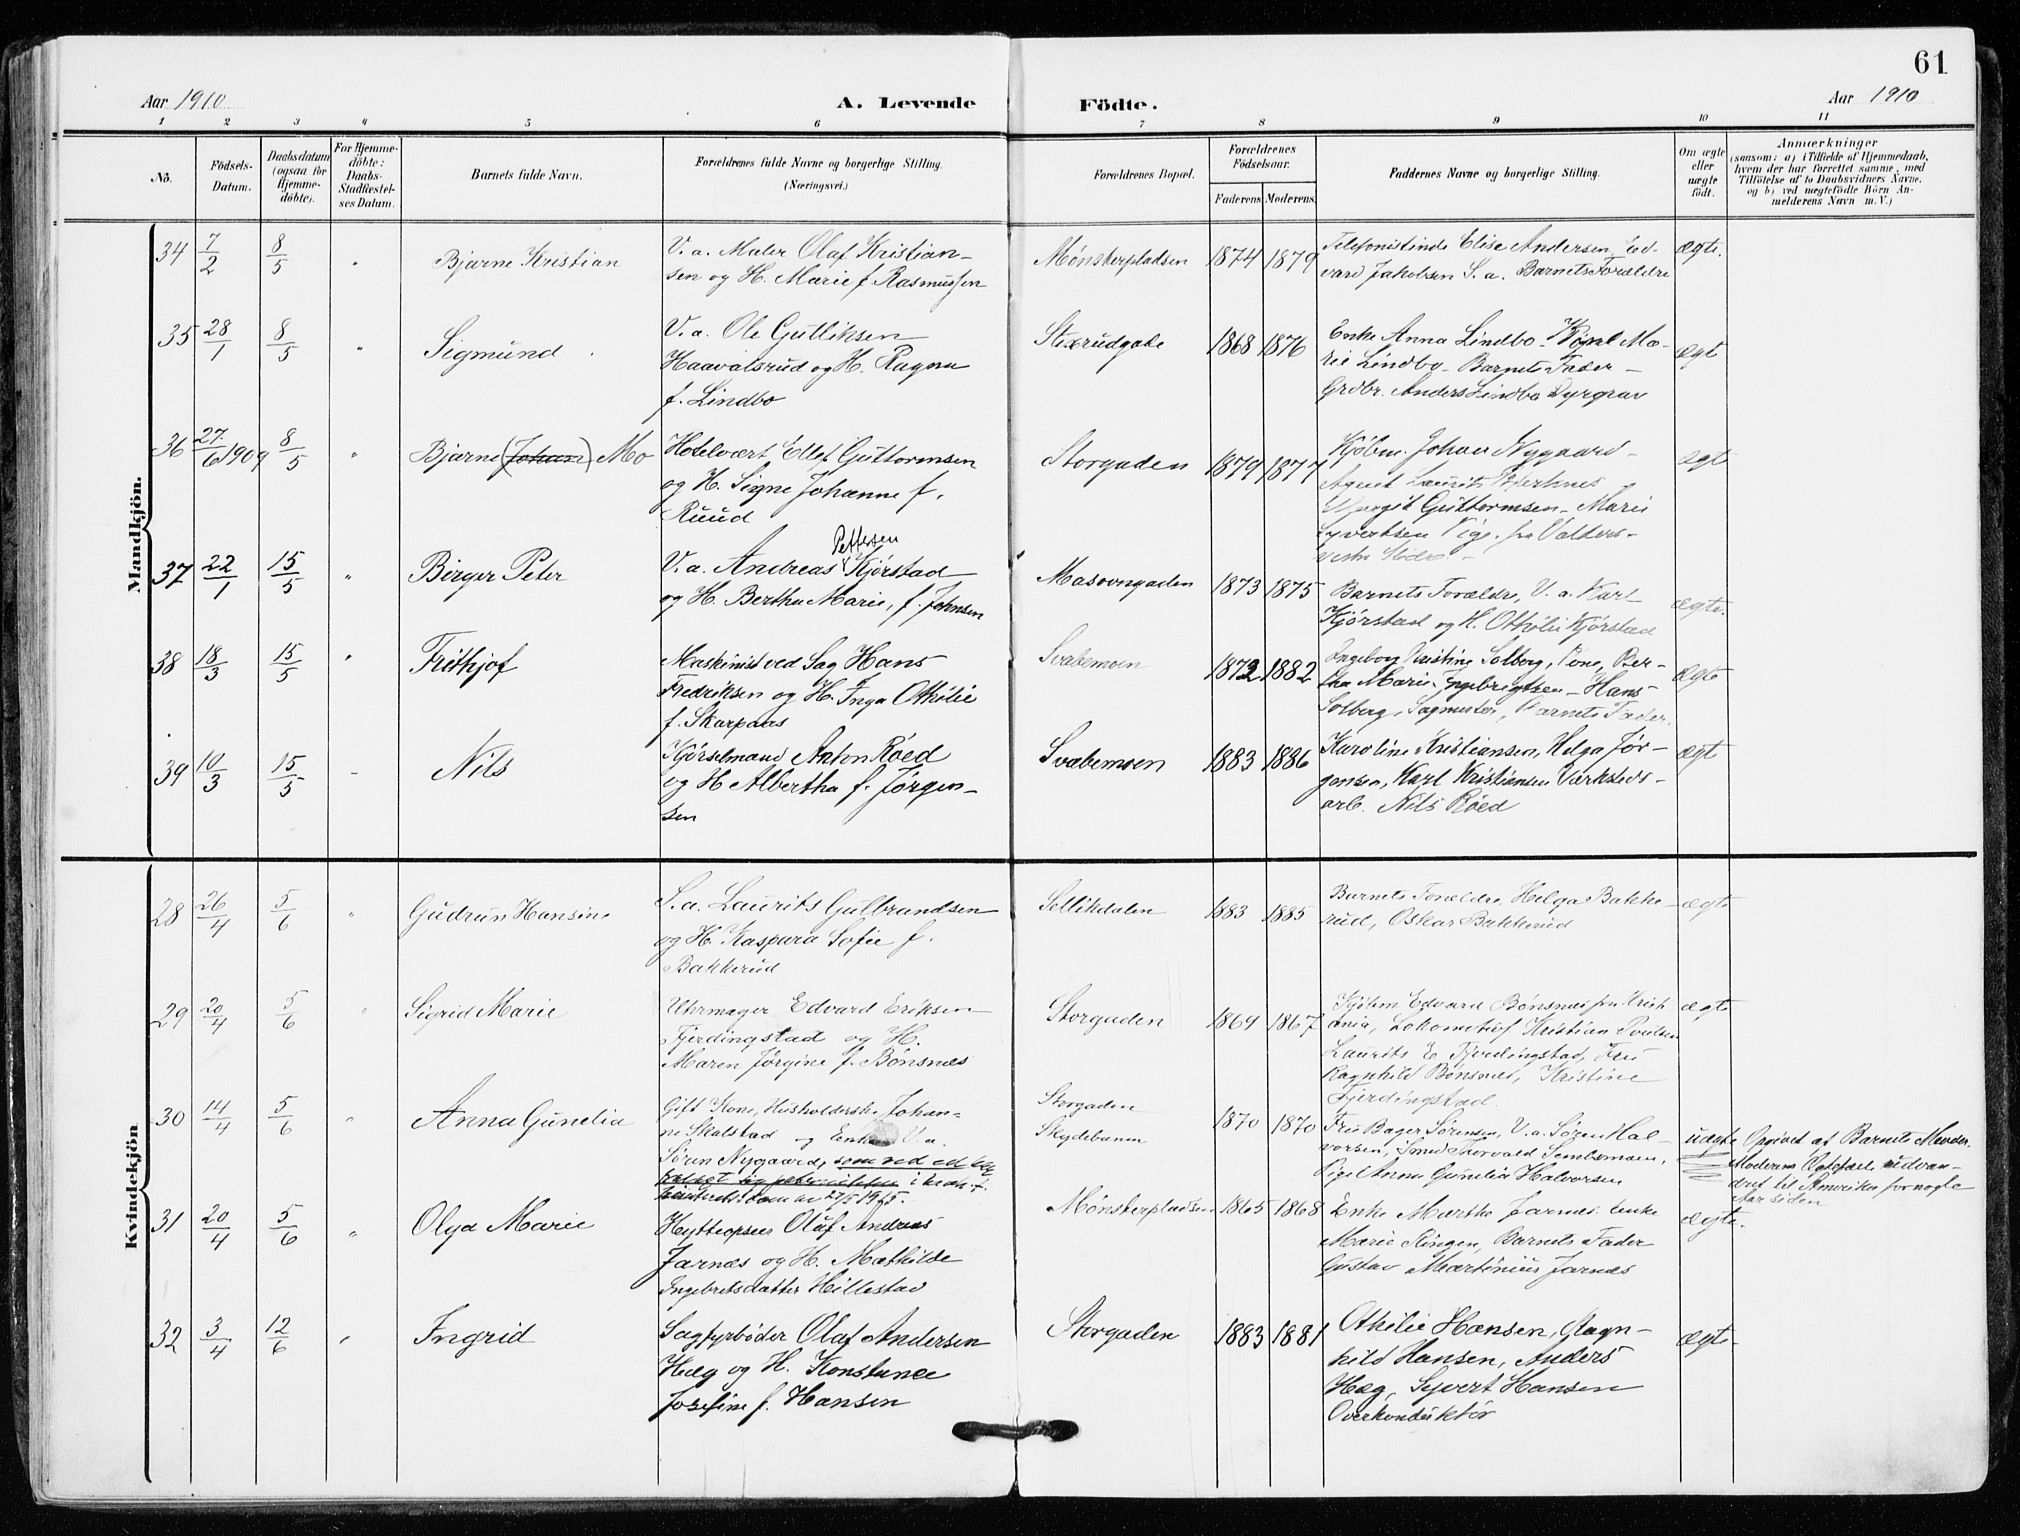 61
Aar 1910
A. Levende Födte.
Aar 1910
1 2 3 4 5 6 7 8 9 10 11
No.
Födsels-
Datum.
Daabsdatum
(ogsaa for
Hjemme-
döbte).
For Hjemme-
döbte:
Daabs-
Stadfæstel-
ses Datum.
Barnets fulde Navn.
Forældrenes fulde Navne og borgerlige Stilling.
(Næringsvei.)
Forældrenes Bopæl.
Forældrenes
Födselsaar.
Faderens. Moderens.
Faddernes Navne og borgerlige Stilling.
Om ægte
eller
uægte
födt.
Anmærkninger
(saasom: a) i Tilfælde af Hjemmedaab,
hvem der har forrettet samme, med
Tilföielse af to Daabsvidners Navne.
og b) ved uægtefödte Börn An-
melderens Navn m. V.)
Mandkjön.
34 7/2 8/5 " Bjarne Kristian
V. a. Maler Olaf Kristian-
sen og H. Marie f. Rasmussen
Mønsterpladsen 1874 1879
Telefonistinde Elise Andersen, Ed-
vard Jakobsen S. a. Barnets Forældre
ægte.
35 28/1 8/5 " Sigmund
V. a. Ole Gulliksen
Haavalsrud og H. Ragna
f. Lindbo
Stixrudgade 1868 1876
Enke Anna Lindbo
rie Lindbo - Barnets Fader -
Grdbr. Anders Lindbo Dyrgrav
ægt
36 27/6 1909 8/5 " Bjarne (Johan) Mo
Hotelvært Ellef Guttormsen
og H. Signe Johanne f.
Ruud
Storgaden 1879 1877
Kjøbm. Johan Nygaard -
Agent Laurits
Margit Guttormsen - Marie
Syvertsen Pige. fra Valders -
ægt
37 22/1 15/5 " Birger Peter
Pettersen
V. a. Andreas Kjørstad
og H. Bertha Marie, f. Johnsen
Masovngaden 1873 1875
Barnets Forældre, V. a. Karl
Kjørstad og H. Othilie Kjørstad
ægte.
38 18/3 15/5 " Frithjof
Maskinist ved Sag Hans
Fredriksen og H. Inga Othilie
f. Skarpaas
Svabemoen 1872 1882
Ingeborg Kristine Solberg, Kone, Ber-
tha Marie Ingebrigtsen - Hans
Solberg, Sagmester, Barnets Fader.
ægte
39 10/3 15/5 - Nils
Kjørselmand Anton Røed
og H Albertha f. Jørgen-
sen
Svabemoen 1883 1886
Karoline Kristiansen, Helga Jør-
gensen, Karl Kristiansen Værksteds-
arb. Nils Røed
ægt
Kvindekjön
28 26/4 5/6 " Gudrun Hansine
S. a. Laurits Gulbrandsen
og H. Kaspara Sofie f.
Bakkerud
Sellikdalen 1883 1885
Barnets Forældre, Helga Bakke-
rud, Oskar Bakkerud
ægte
29 20/4 5/6 " Sigrid Marie
Uhrmager Edvard Eriksen
Fjerdingstad og H.
Maren Jørgine f. Bønsnes
Storgaden 1869 1867
Kjøbm Edvard Bønsnes fra Krist
ania, Lokomotivf Kristian Poulsen
Laurits E. Fjerdingstad, Fru
Ragnhild Bønsnes, Kristine
Fjerdingstad.
ægte
30 14/4 5/6 " Anna Gunelia
Gift Kone, Husholderske Johan-
ne Skalstad og Enkem. V. a.
Søren Nygaard, som ved ed
Storgaden
Skydebanen
1870 1870
Fru Bager Sørensen, V. a. Søren Hal-
vorsen, Smed Thorvald Tembsmoen,
Pige Anna Gunelia Halvorsen
uægte
Opgivet af Barnets Moder
Moderens Ægtefælle udvan-
dret til Amerika for nogle
Aar siden
31 20/4 5/6 " Olga Marie
Hytteopseer Olaf Andreas
Jarnæs og H. Mathilde
Ingebretsdatter Hillestad
Mønsterpladsen 1865 1868
Enke Marthe Jarnæs, Enke
Marie Ringen, Barnets Fader
Gustav Martinius Jarnæs
ægte.
32 3/4 12/6 " Ingrid
Sagfyrbøder Olaf Andersen
Hæg og H. Konstance
Josefine f. Hansen
Storgaden 1883 1881
Othilie Hansen, Ragn-
hild Hansen, Anders
Hæg, Syvert Hansen
Overkonduktør
ægte